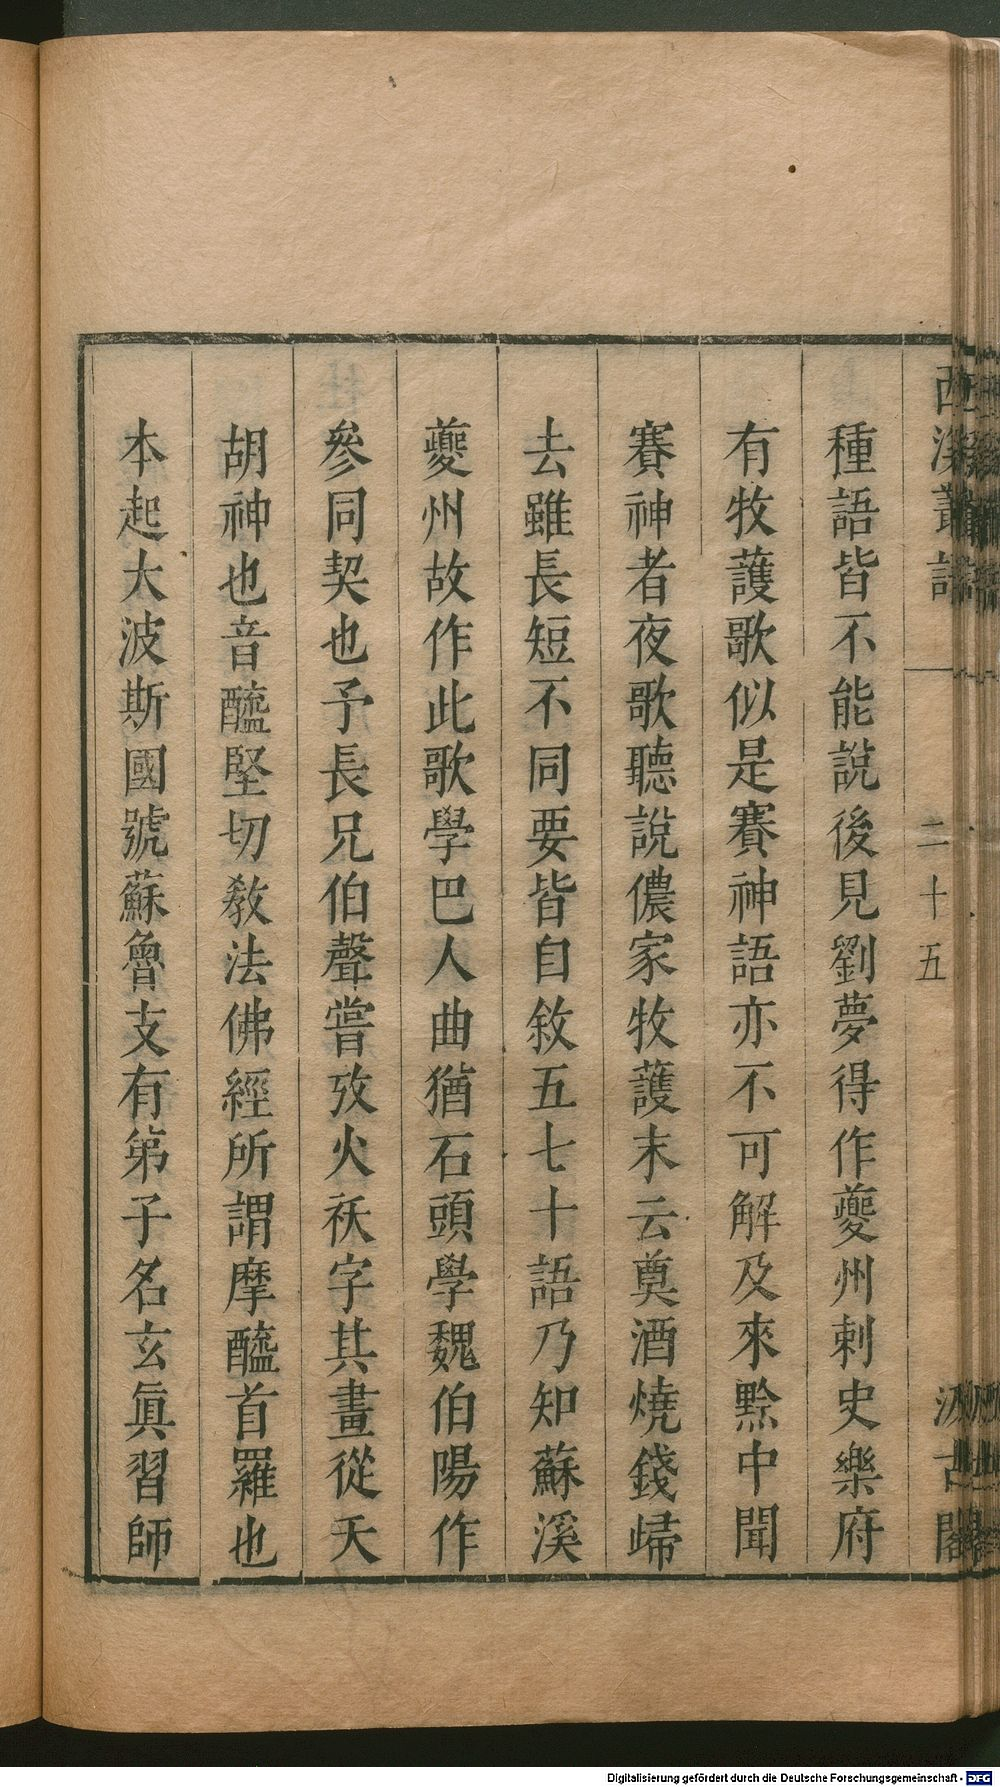 西溪叢語
二十五
汲古閣
種語皆不能說後見劉夢得作夔州刺史樂府
有牧護歌似是賽神語亦不可解及來黔中聞
賽神者夜歌聽說儂家牧護末云奠酒燒錢歸
去雖長短不同要皆自敘五七十語乃知蘇溪
夔州故作此歌學巴人曲猶石頭學魏伯陽作
參同契也予長兄伯聲嘗攷火祆字其畫從天
胡神也音醯堅切教法佛經所謂摩醯首羅也
本起大波斯國號蘇魯支有弟子名玄眞習師
Digitalisierung gefördert durch die Deutsche Forschungsgemeinschaft - DFG